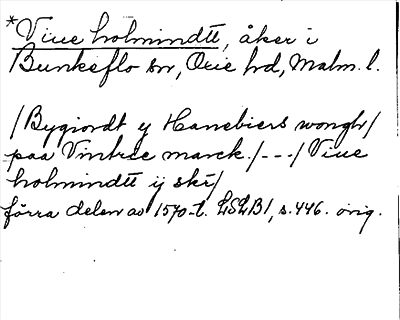 *Viue holmindtt, åker i
Bunkeflo sn, Oxie hd, Malm. l.
/Bygiordt y Hanebiers wongh/
paa Vintrie marck./---/Viue
holmindtt ij skr/
förra delen av 1570-t. LSLB1, s.446. orig.